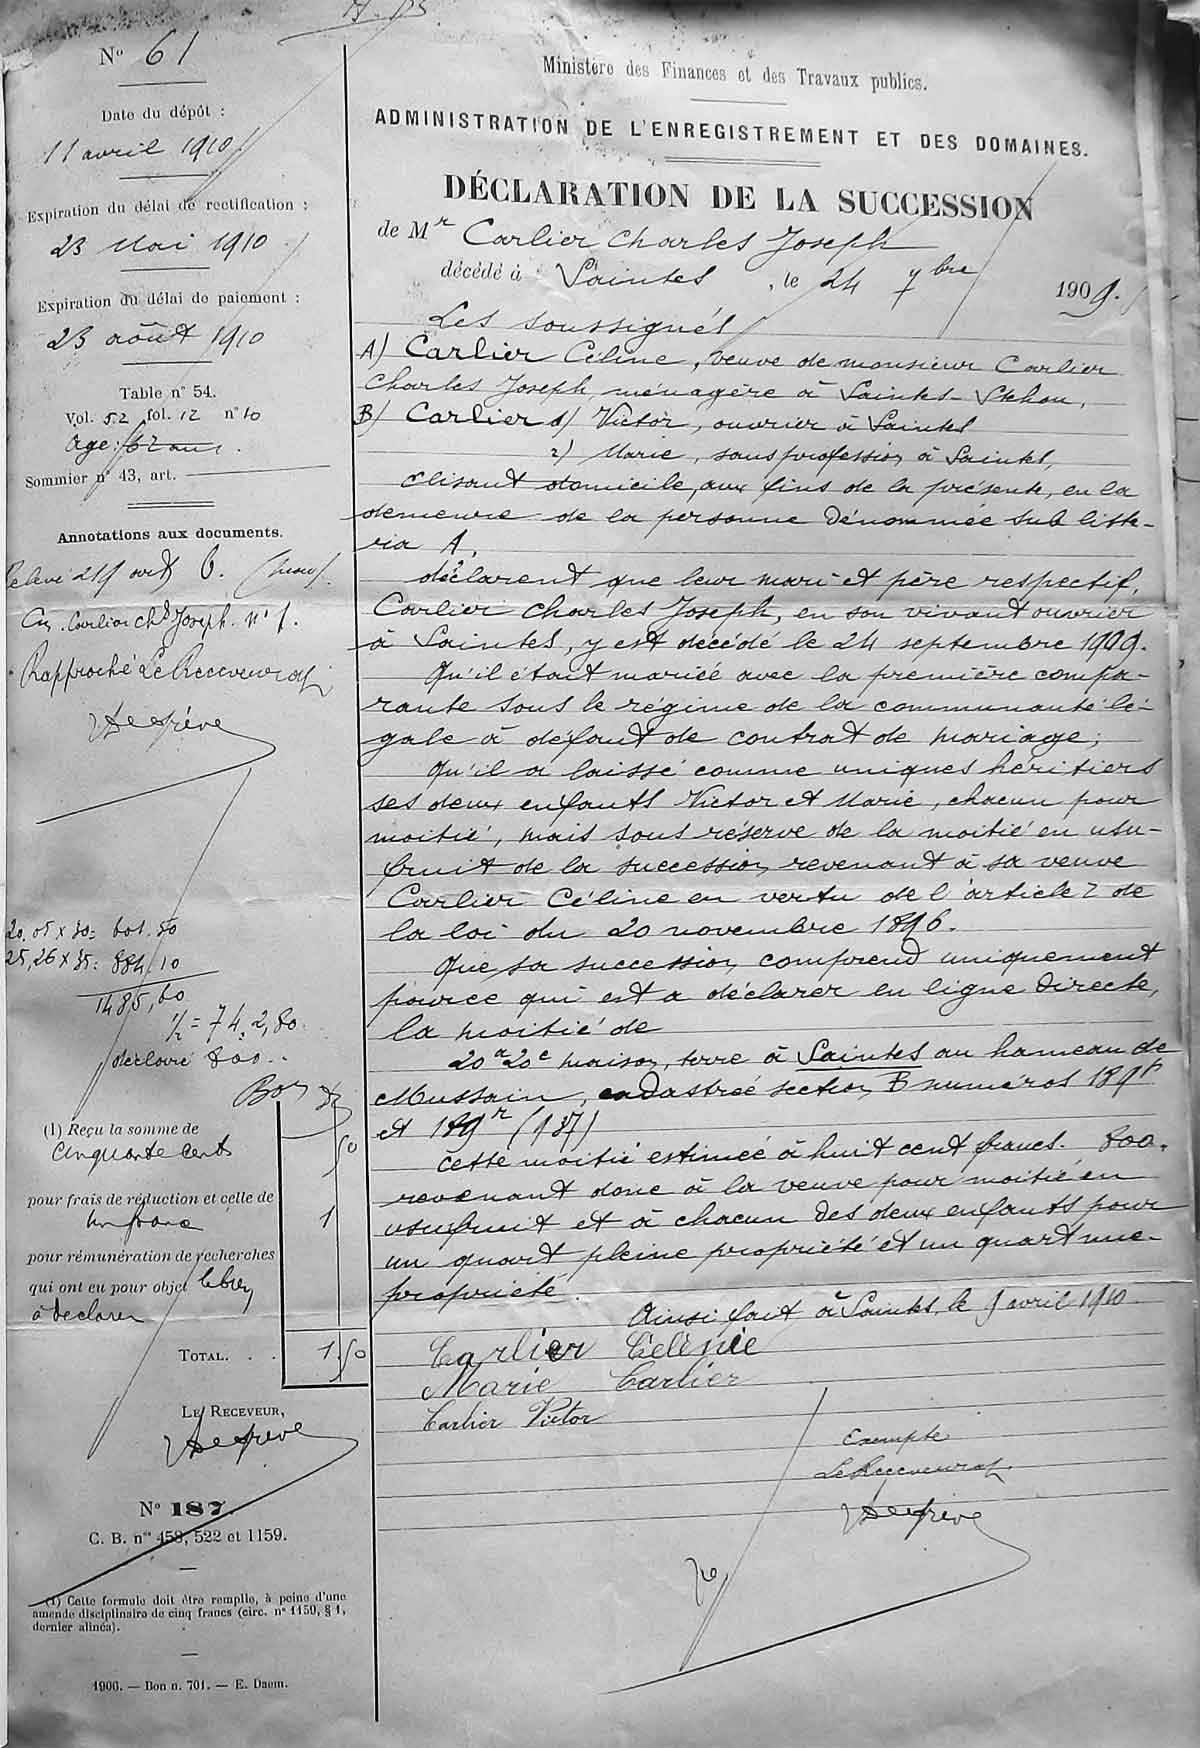 Nº 61
Date du dépôt :
11 avril 1910
Expiration du délai de rectification :
23 Mai 1910
Expiration du délai de paiement :
23 août 1910
Table nº 54.
Vol. 52 fol. 12 nº 10
Age : 62 ans.
Sommier nº 43, art.
Annotations aux documents.
Relevé 219
Carlier Chs Joseph. nº 1.
Rapproché Le Receveur
20.05 x 30 = 601.50
25,26 x 35 = 884.10
1485,60
1/2 = 742,80
déclaré 800..
Bon
(1) Reçu la somme de
cinquante cents 50
pour frais de rédaction et celle de
un franc 1
pour rémunération de recherches
qui ont eu pour objet le bien
à déclarer
TOTAL. . . 1.50
LE RECEVEUR,
Nº 187.
C. B. nos 458, 522 et 1159.
(1) Cette formule doit être remplie, à peine d'une
amende disciplinaire de cinq francs (circ. nº 1159, § 1,
dernier alinéa).
1906. — Bon n. 701. — E. Daem.
Ministère des Finances et des Travaux publics.
ADMINISTRATION DE L'ENREGISTREMENT ET DES DOMAINES.
DÉCLARATION DE LA SUCCESSION
de Mr Carlier Charles Joseph
décédé à Saintes, le 24 7bre 1909.
Les soussignés
A) Carlier Céline, veuve de monsieur Carlier
Charles Joseph, ménagère à Saintes
B) Carlier 1) Victor, ouvrier à Saintes
2) Marie, sans profession à Saintes,
élisant domicile, aux fins de la présente, en la
demeure de la personne dénommée sub litte-
ra A,
déclarent que leur mari et père respectif,
Carlier Charles Joseph, en son vivant ouvrier
à Saintes, y est décédé le 24 septembre 1909.
Qu'il était marié avec la première compa-
rante sous le régime de la communauté lé-
gale à défaut de contrat de mariage;
Qu'il a laissé comme uniques héritiers
ses deux enfants Victor et Marie, chacun pour
moitié, mais sous réserve de la moitié en usu-
fruit de la succession, revenant à sa veuve
Carlier Céline en vertu de l'article 2 de
la loi du 20 novembre 1896.
Que sa succession, comprend uniquement
pour ce qui est a déclarer en ligne directe,
la moitié de
20a 20c maison, terre à Saintes au hameau de
Mussain, cadastrée section B numéros
et 189r (137)
Cette moitié estimée à huit cent francs. 800.
revenant donc à la veuve pour moitié en
usufruit et à chacun des deux enfants pour
un quart pleine propriété et un quart nue-
propriété.
Ainsi fait à Saintes, le 9 avril 1910.
Carlier Célenie
Marie Carlier
Carlier Victor
Exempte
Le Receveur